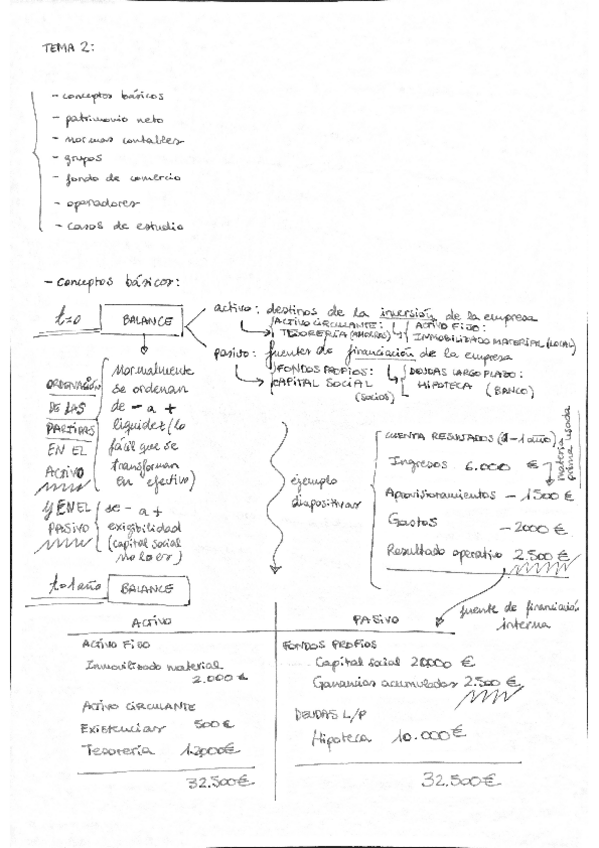 TEMA 2:
- conceptos básicos
- patrimonio neto
- normas contables
- grupos
- fondo de comercio
- operadores
- casos de estudio
- conceptos básicos:
t=0 BALANCE
activo: destinos de la inversión de la empresa
ACTIVO CIRCULANTE:
TESORERÍA (AHORRO)
ACTIVO FIJO:
INMOVILIZADO MATERIAL (LOCAL)
pasivo: fuentes de financiación de la empresa
FONDOS PROPIOS:
CAPITAL SOCIAL
(socios)
DEUDAS LARGO PLAZO:
HIPOTECA (BANCO)
ORDENACIÓN
DE LAS
PARTIDAS
EN EL
ACTIVO
Normalmente
se ordenan
de - a +
liquidez (lo
fácil que se
transforman
en efectivo)
Y EN EL
PASIVO
se - a +
exigibilidad
(capital social
no lo es)
ejemplo
diapositivas
CUENTA RESULTADOS (1 año)
Ingresos 6.000 €
materia
prima usada
Aprovisionamientos - 1500 €
Gastos - 2000 €
Resultado operativo 2.500 €
fuente de financiación
interna
t=1 año BALANCE
ACTIVO
ACTIVO FIJO
Inmovilizado material
2.000 €
ACTIVO CIRCULANTE
Existencias 500 €
Tesorería 12000 €
32.500 €
PASIVO
FONDOS PROPIOS
Capital social 20000 €
Ganancias acumuladas 2.500 €
DEUDAS L/P
Hipoteca 10.000 €
32.500 €